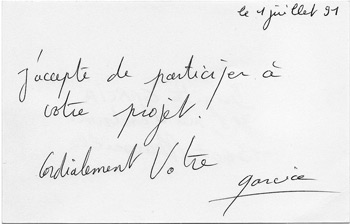 le 1 juillet 91
j'accepte de participer à
votre projet.
Cordialement Votre
garcia